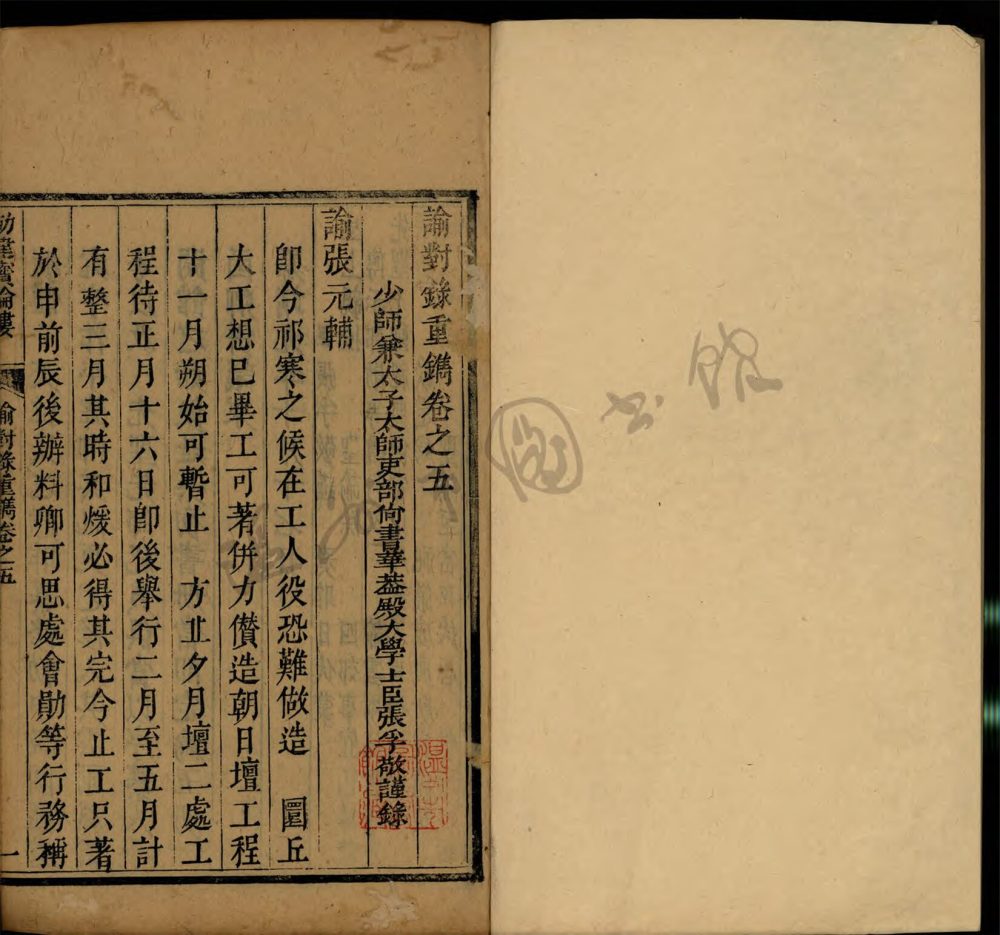 諭對錄重鐫卷之五
少師兼太子太師吏部尚書華葢殿大學士臣張孚敬謹錄
諭張元輔
卽今祁寒之候在工人役恐難做造　圜丘
大工想已畢工可著併力儹造朝日壇工程
十一月朔始可暫止　方丄夕月壇二處工
程待正月十六日卽後舉行二月至五月計
有整三月其時和煖必得其完今止工只著
於申前辰後辦料卿可思處會勛等行務稱
諭對錄重鐫卷之五
一
寶綸樓